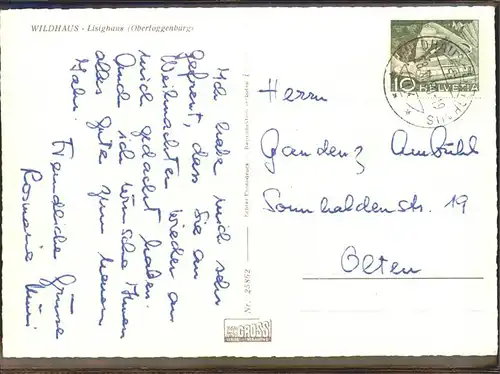 WILDHAUS - Lisighaus (Obertoggenburg)
Ich habe mich sehr
gefreut, dass Sie an
Weihnachten wieder an
mich gedacht haben.
Auch ich wünsche Ihnen
alles Gute zum neuen
Jahr.
Freundliche Grüsse
Rosmarie
Nr. 25862
GROSS
10
HELVETIA
WILDHAUS
Herrn
Gaudenz Ambühl
Sonnhaldenstr. 19
Olten